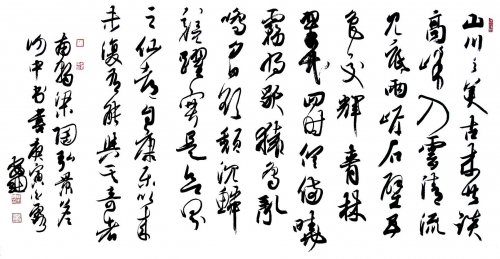 山川之美古来共谈
高峰入雲清流
见底兩岸石壁五
色交輝青林
翠竹四时俱備曉
霧将歇猿鸟乱
鳴夕日欲頽沉鳞
競躍实是欲界
之仙都自康乐以来
未復有能與其奇者
南朝梁陶弘景答
谢中书書庚寅之